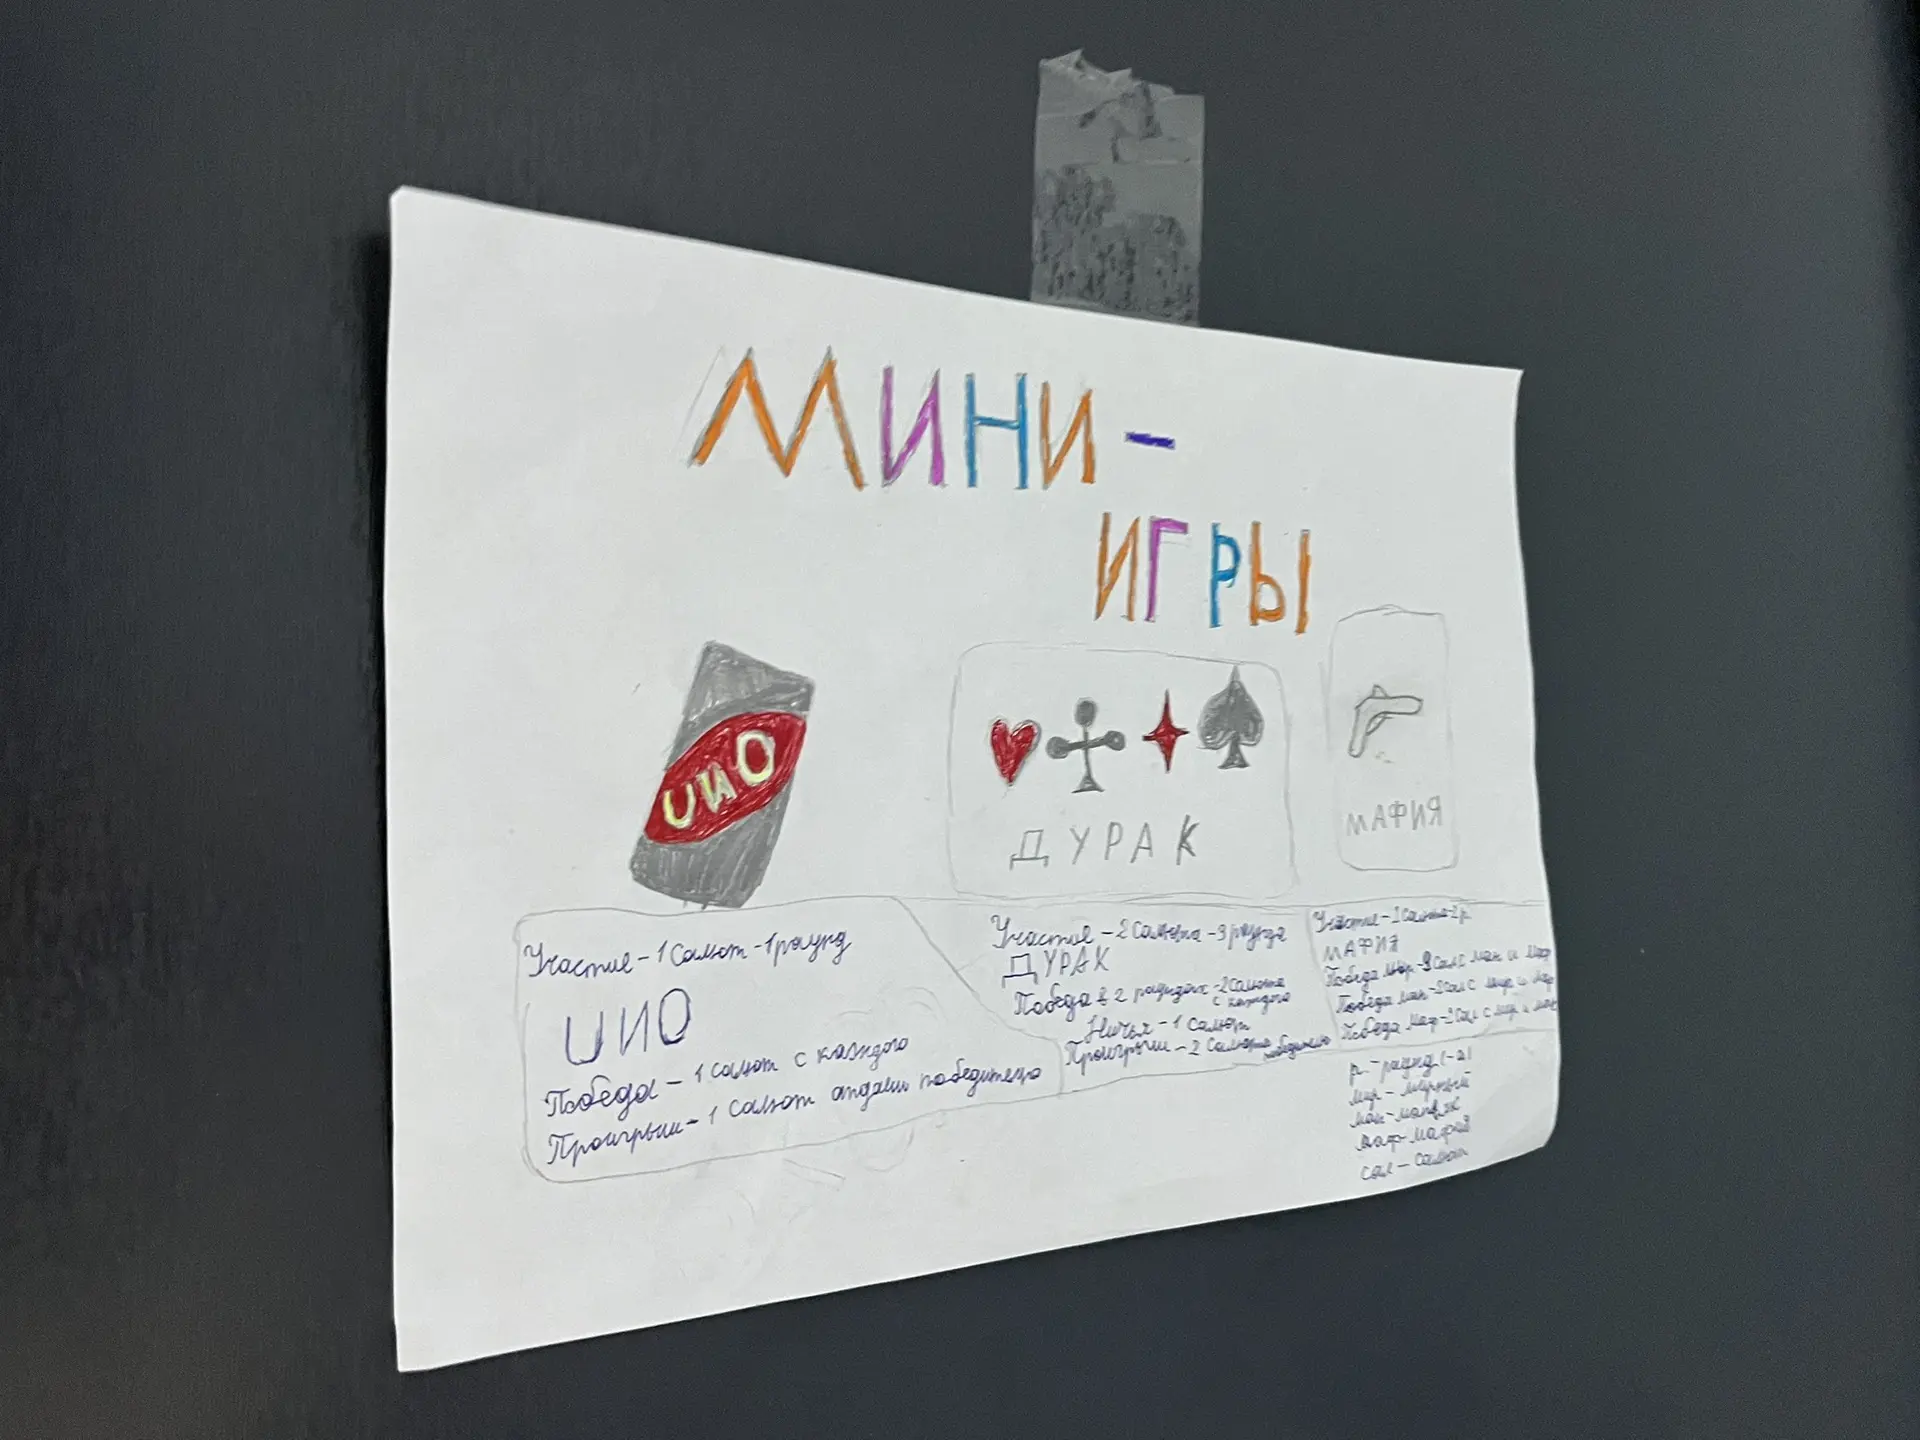 МИНИ-
ИГРЫ
UИO
ДУРАК
МАФИЯ
Участие - 1 Салют - 1 раунд
UИO
Победа - 1 салют с каждого
Проигрыш - 1 салют отдаёш победителю
Участие - 2 Салюта - 3 раунда
ДУРАК
Победа в 2 раундах - 2 Салюта
с каждого
Ничья - 1 салют
Проигрыш - 2 Салюта победителю
Участие - 1 Салют - 2 р.
МАФИЯ
Победа мир - Сал с ман и маф
Победа ман - Сал с мир и маф
Победа маф - Сал с мир и ман
р. - раунд (-а)
мир - мирный
ман - маньяк
маф - мафия
сал - салют